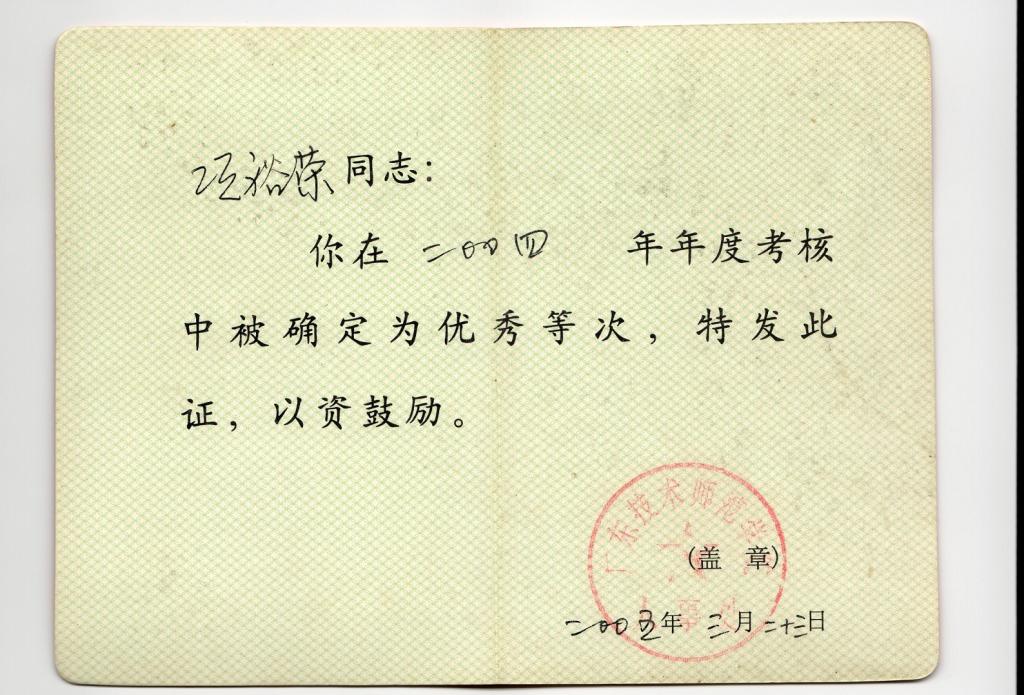 项裕荣同志：
你在 二〇〇四 年年度考核
中被确定为优秀等次，特发此
证，以资鼓励。
广东技术师范学院
(盖 章)
二〇〇五年 三月二十三日